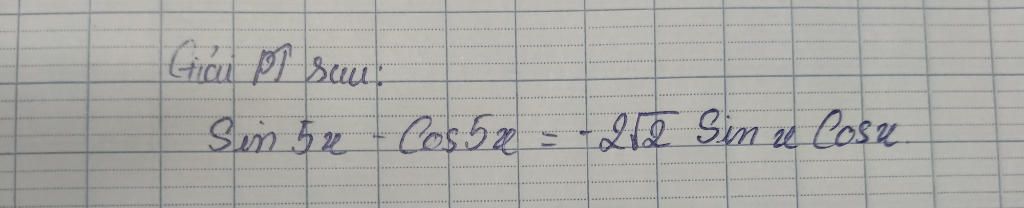 Giải PT sau:
Sin 5x - Cos 5x = -2√2 Sin x Cos x